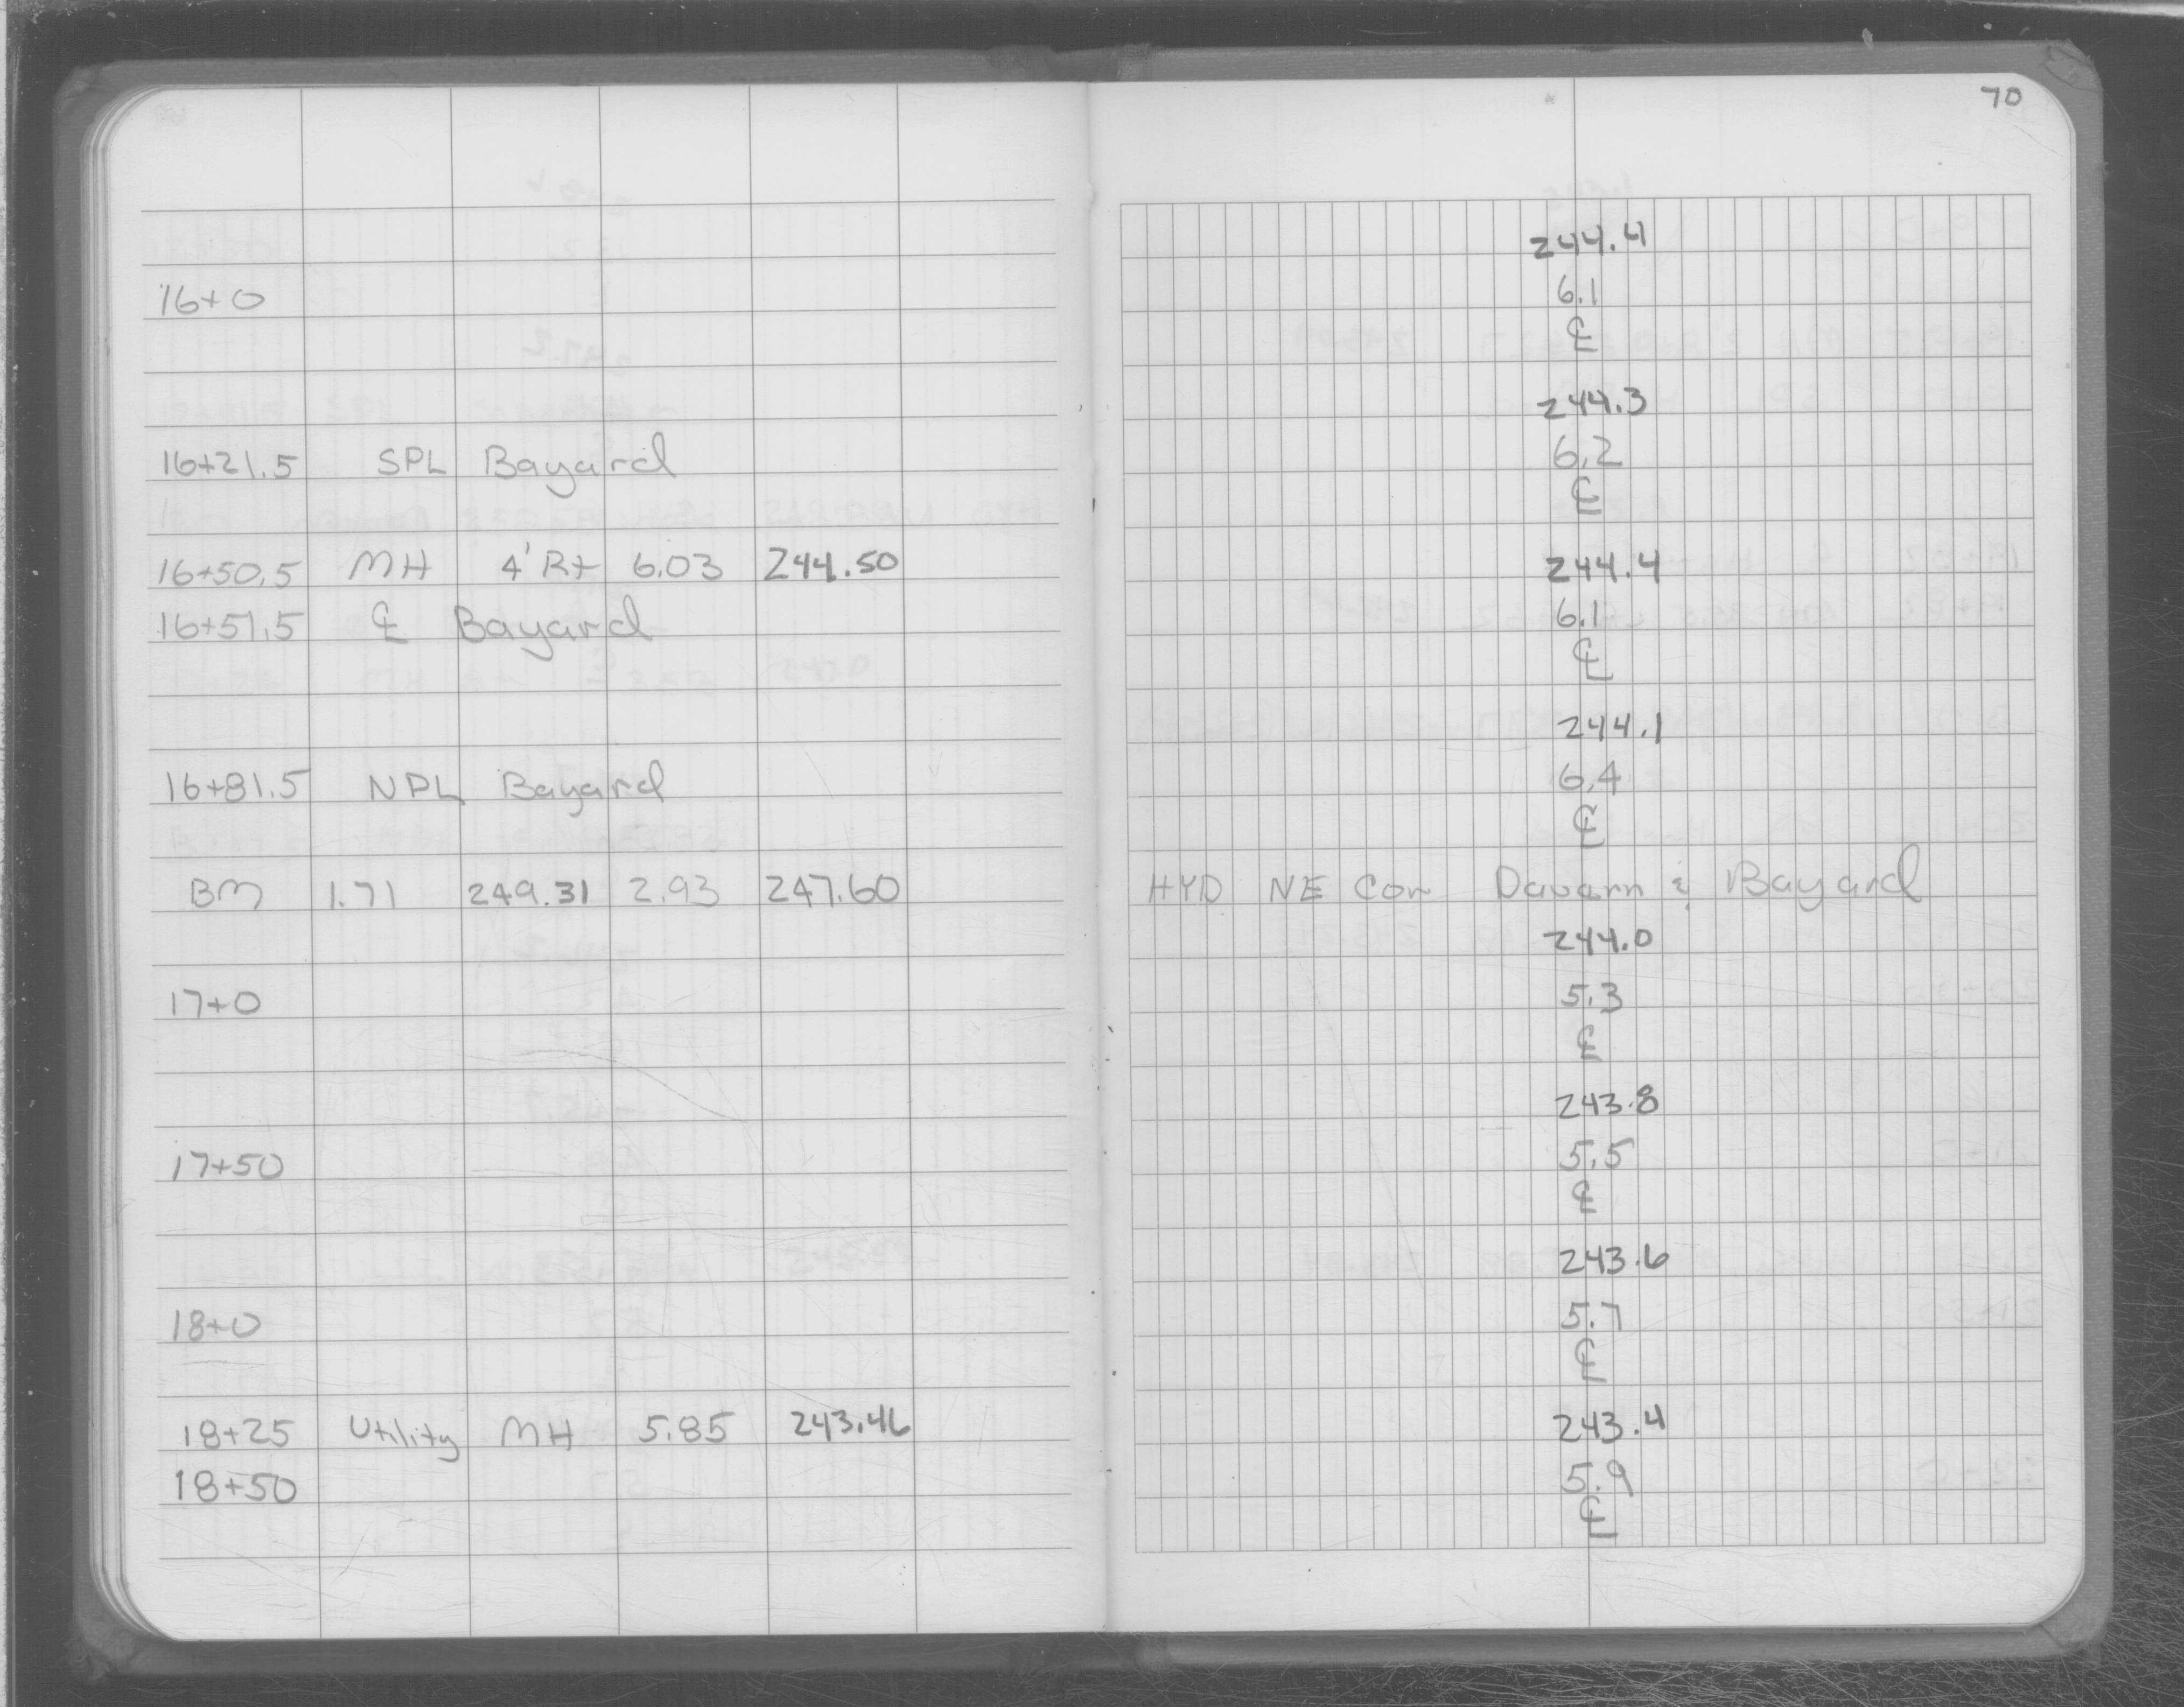 70
244.4
16+0 6.1
℄
244.3
16+21.5 SPL Bayard 6.2
℄
16+50.5 MH 4' Rt 6.03 244.50 244.4
16+51.5 ℄ Bayard 6.1
℄
244.1
16+81.5 NPL Bayard 6.4
℄
BM 1.71 249.31 2.93 247.60 HYD NE Cor Davern & Bayard
244.0
17+0 5.3
℄
243.8
17+50 5.5
℄
243.6
18+0 5.7
℄
18+25 Utility MH 5.85 243.46 243.4
18+50 5.9
℄